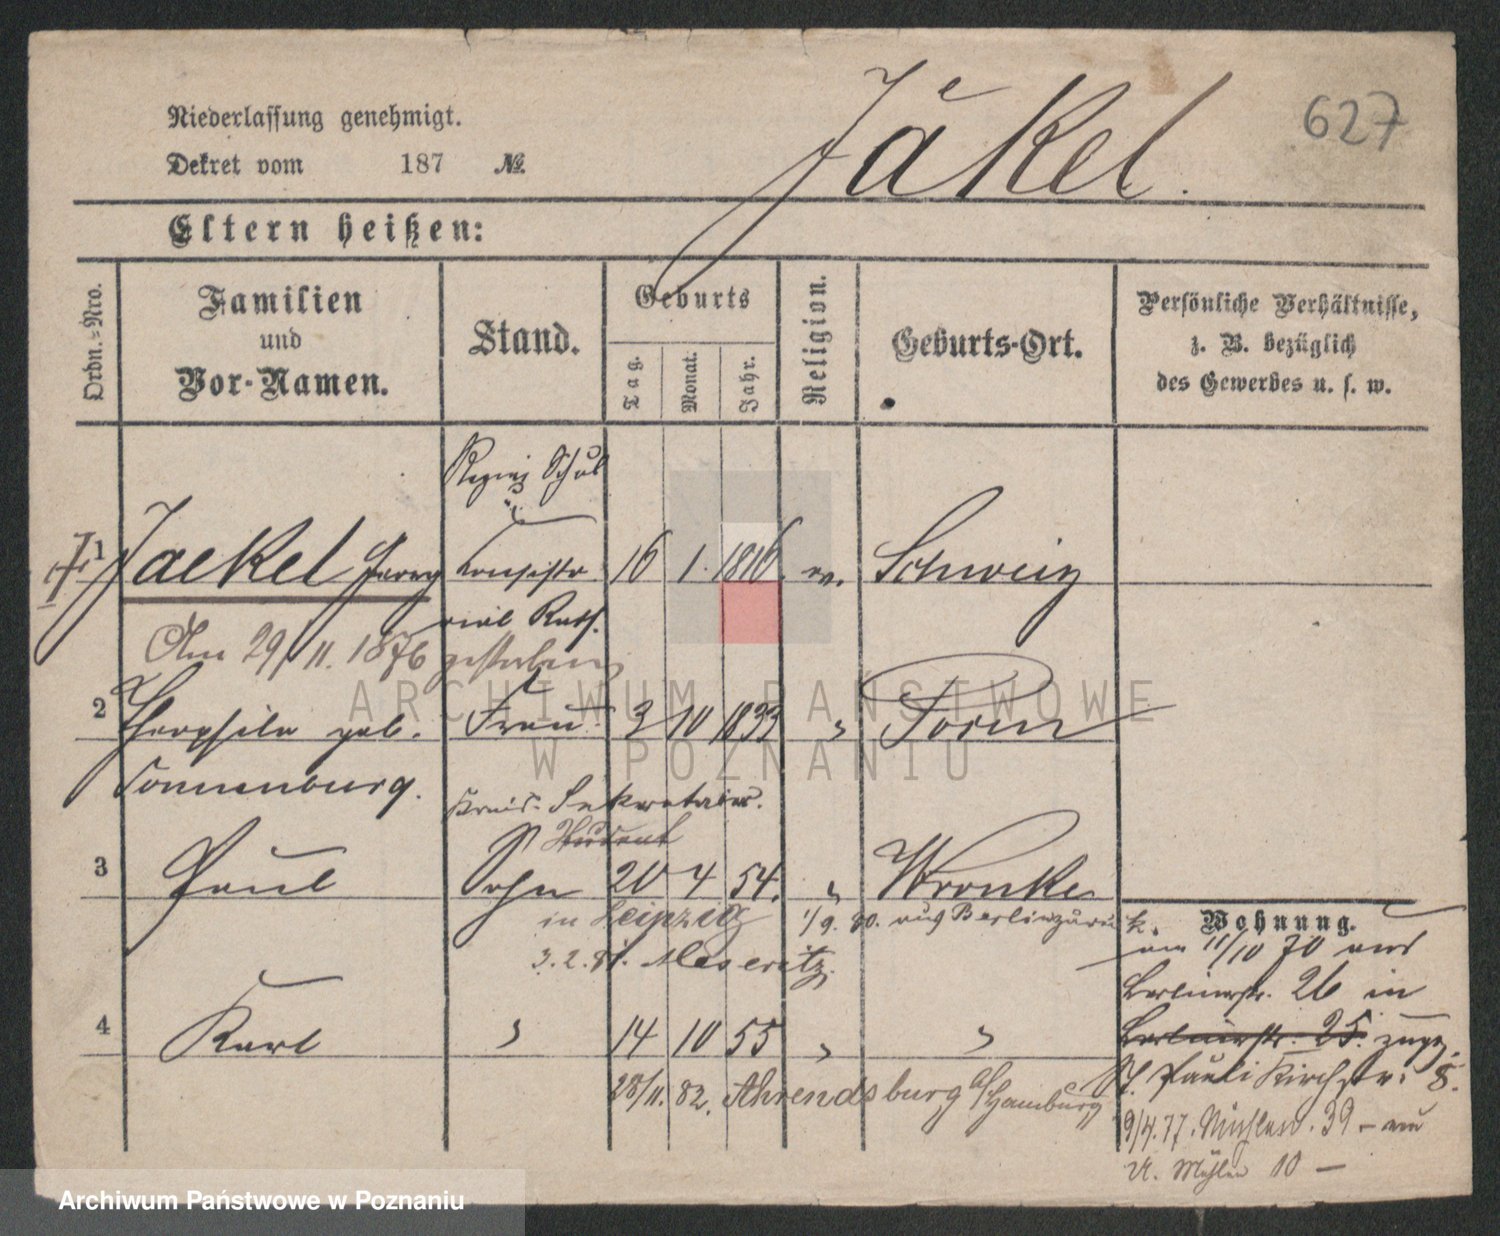 Niederlassung genehmigt.
Dekret vom 187 №
Jäkel.
627
Eltern heißen:
Ordn.=Nro.
Familien
und
Vor-Namen.
Stand.
Geburts
Tag.
Monat.
Jahr.
Religion.
Geburts-Ort.
Persönliche Verhältnisse,
z. B. bezüglich
des Gewerbes u. s. w.
Schul
1 Jaekel Georg 16 1. 1816. ev. Schwerin
rial Rath.
Am 29/11. 1876 gestorben
2 Theophile geb. Frau 3 10 1833 " Posen
Sonnenburg.
Kreis-Sekretair.
Student
3 Paul Sohn 20 4 54. " Wronke
in Leipzig 1/9. 80. aus Berlin zurück.
Wohnung.
3. 2. 81. Meseritz.
am 11/10 70 aus
Berlinerstr. 26 in
4 Karl " 14 10 55 " "
Berlinerstr. 25. zugez.
St. Paulikirchstr. 8.
28/11. 82. Ahrendsburg a/Hamburg
9/4. 77. Mühlenstr. 39 –
Mühlen 10 –
ARCHIWUM PAŃSTWOWE
W POZNANIU
Archiwum Państwowe w Poznaniu